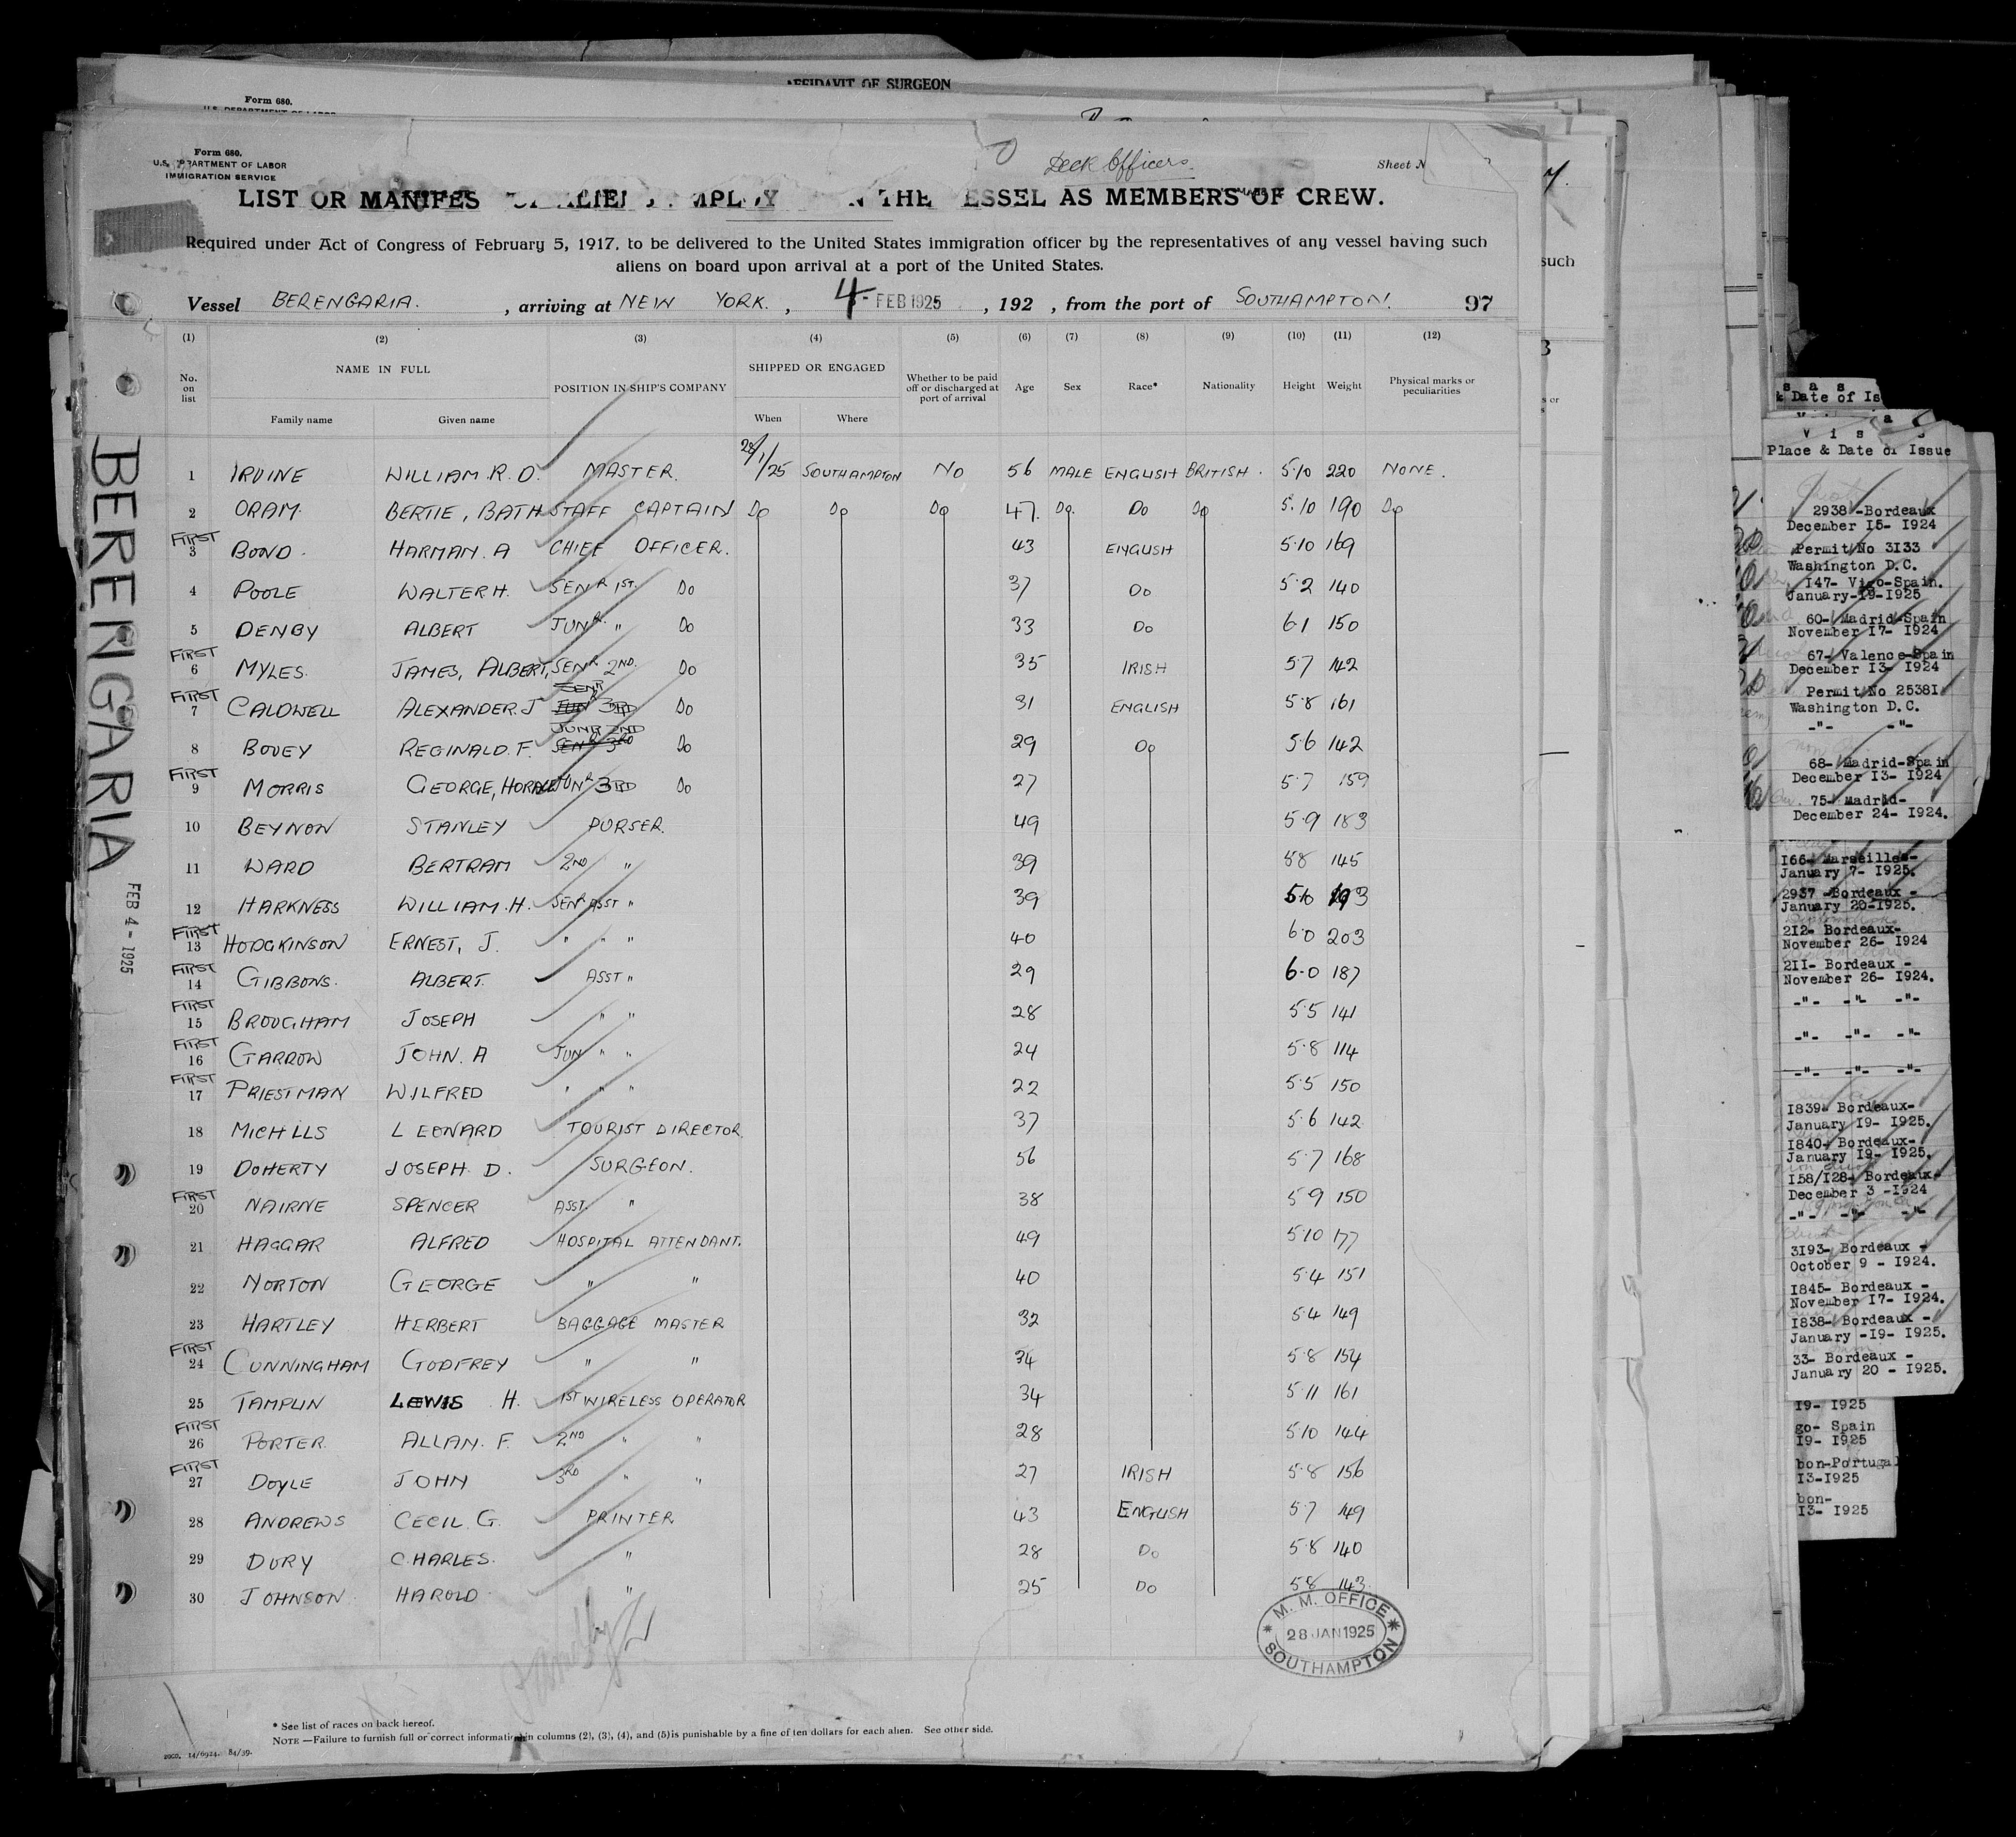 AFFIDAVIT OF SURGEON
Form 680.
U.S. DEPARTMENT OF LABOR
Form 680.
U.S. DEPARTMENT OF LABOR
IMMIGRATION SERVICE
Deck Officers
Sheet N
LIST OR MANIFES ALIEN MPLOY N THE ESSEL AS MEMBERS OF CREW.
Required under Act of Congress of February 5, 1917, to be delivered to the United States immigration officer by the representatives of any vessel having such
aliens on board upon arrival at a port of the United States.
Vessel BERENGARIA. , arriving at NEW YORK. , 4 - FEB 1925 , 192 , from the port of SOUTHAMPTON. 97
(1) (2) (3) (4) (5) (6) (7) (8) (9) (10) (11) (12)
No. on list NAME IN FULL POSITION IN SHIP'S COMPANY SHIPPED OR ENGAGED Whether to be paid off or discharged at port of arrival Age Sex Race* Nationality Height Weight Physical marks or peculiarities
Family name Given name When Where
1 IRVINE WILLIAM.R.D. MASTER. 28/1/25 SOUTHAMPTON NO 56 MALE ENGLISH BRITISH. 5.10 220 NONE.
2 ORAM. BERTIE, BATH STAFF CAPTAIN Do Do Do 47. Do. Do Do 5.10 190 Do
FIRST
3 BOND. HARMAN. A CHIEF OFFICER. 43 ENGLISH 5.10 169
4 POOLE WALTER H. SENR 1ST. Do 37 Do 5.2 140
5 DENBY ALBERT JUNR. " Do 33 Do 6.1 150
FIRST
6 MYLES. JAMES, ALBERT, SENR 2ND. Do 35 IRISH 5.7 142
SENR
FIRST
7 CALDWELL ALEXANDER. J JUNR 3RD Do 31 ENGLISH 5.8 161
JUNR 2ND
8 BOVEY REGINALD. F. SENR 3RD Do 29 Do 5.6 142
FIRST
9 MORRIS GEORGE, HORACE JUNR 3RD Do 27 5.7 159
10 BEYNON STANLEY PURSER. 49 5.9 183
11 WARD BERTRAM 2ND " 39 5.8 145
12 HARKNESS WILLIAM. H. SENR ASST " 39 5.10 193
FIRST
13 HODGKINSON ERNEST, J. " " " 40 6.0 203
FIRST
14 GIBBONS. ALBERT. ASST " 29 6.0 187
FIRST
15 BROUGHAM JOSEPH " " 28 5.5 141
FIRST
16 GARROW JOHN. A JUN " " 24 5.8 114
FIRST
17 PRIESTMAN WILFRED " " " 22 5.5 150
18 MICHLLS LEONARD TOURIST DIRECTOR. 37 5.6 142
19 DOHERTY JOSEPH. D. SURGEON. 56 5.7 168
FIRST
20 NAIRNE SPENCER ASST. " 38 5.9 150
21 HAGGAR ALFRED HOSPITAL ATTENDANT. 49 5.10 177
22 NORTON GEORGE " " 40 5.4 151
23 HARTLEY HERBERT BAGGAGE MASTER 32 5.4 149
FIRST
24 CUNNINGHAM GODFREY " " 34 5.8 154
25 TAMPLIN LEWIS H. 1ST WIRELESS OPERATOR 34 5.11 161
FIRST
26 PORTER. ALLAN. F. 2ND " " 28 5.10 144
FIRST
27 DOYLE JOHN 3RD " " 27 IRISH 5.8 156
28 ANDREWS CECIL. G. PRINTER 43 ENGLISH 5.7 149
29 DURY CHARLES. " 28 Do 5.8 140
30 JOHNSON HAROLD " 25 Do 5.8 143.
M. M. OFFICE
28 JAN 1925
SOUTHAMPTON
* See list of races on back hereof.
NOTE —Failure to furnish full or correct information in columns (2), (3), (4), and (5) is punishable by a fine of ten dollars for each alien. See other side.
14/6924. 84/39.
BERENGARIA
FEB 4 - 1925
such
s a s
& Date of Is
V i s a s
Place & Date of Issue
2938 -Bordeaux
December 15- 1924
Permit No 3133
Washington D.C.
147- Vigo-Spain.
January-19-1925
60- Madrid-Spain
November 17- 1924
67- Valence-Spain
December 13- 1924
Permit No 25381
Washington D.C.
-"- -"-
68- Madrid-Spain
December 13- 1924
75- Madrid-
December 24- 1924.
166- Marseilles-
January 7- 1925.
2937 -Bordeaux -
January 20-1925.
212- Bordeaux-
November 26- 1924
211- Bordeaux -
November 26- 1924.
-"- -"- -"-
-"- -"- -"-
-"- -"- -"-
1839- Bordeaux-
January 19- 1925.
1840- Bordeaux-
January 19- 1925.
158/128- Bordeaux-
December 3 -1924
-"- -"- -"-
3193- Bordeaux -
October 9 - 1924.
1845- Bordeaux -
November 17- 1924.
1838- Bordeaux -
January -19- 1925.
33- Bordeaux -
January 20 - 1925.
19- 1925
go- Spain
19- 1925
bon-Portugal
13-1925
bon-
13- 1925